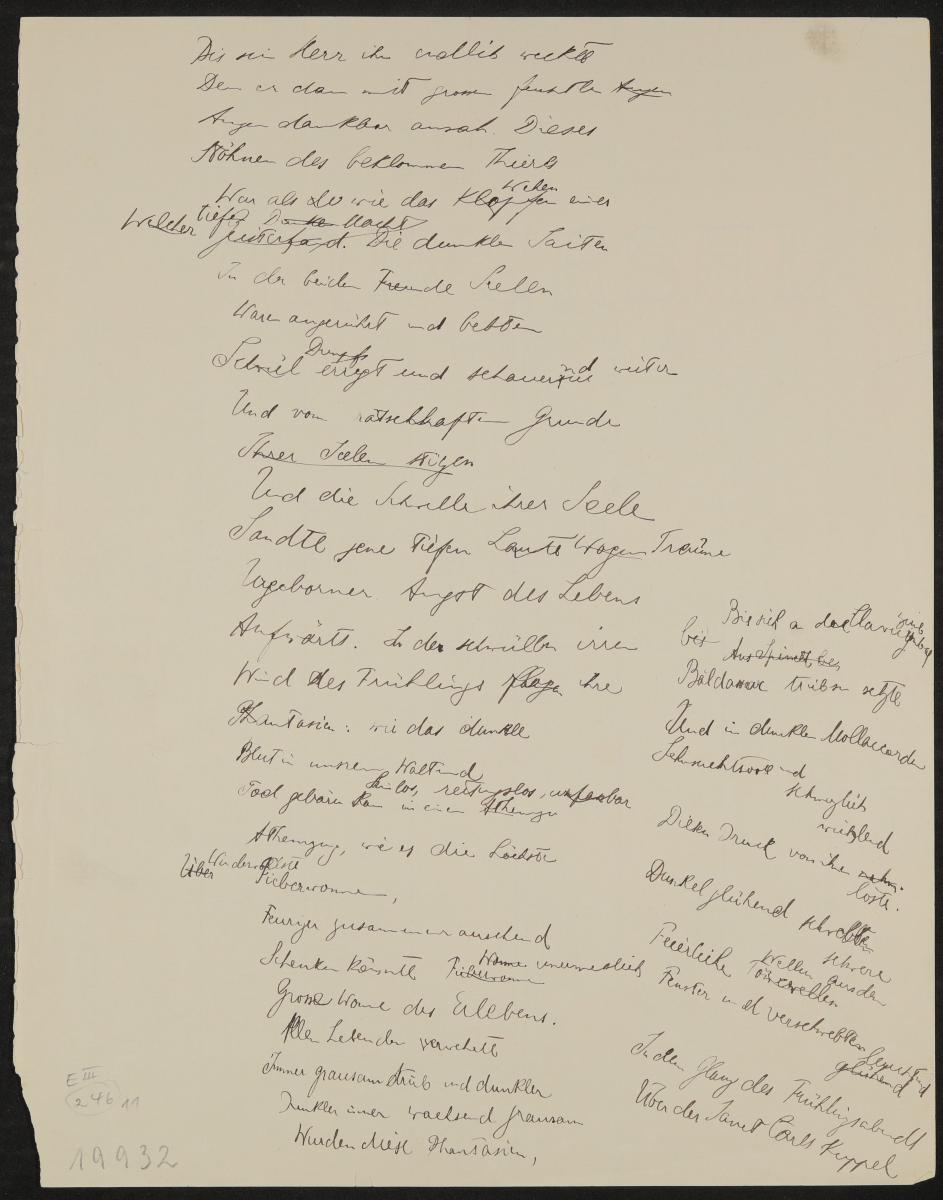 Bis sein Herr ihn endlich weckte
Den er dann mit grossen feuchten Augen
Augen dankbar ansah. Dieses
Stöhnen des beklommnen Thieres
Wehen
War als du wie das Klopfen einer
tiefer Dunkle Nacht
Welcher Geisterjagd. Die dunklen Saiten
In der beiden Freunde Seelen
Waren angerührt und bebten
Dumpf
Schwül erregt und schauernd weiter
Und vom rätselhaften Grunde
Ihrer Seelen stiegen
Und die Schwelle ihrer Seele
Sandte jene tiefen Laute Wogen Träume
Ungeborner Angst des Lebens
Aufwärts. In der schwülen irren
Wind des Frühlings flogen ihre
Phantasien: wie das dunkle
Blut in unsrem Walt und
Tod gebären kann in einem Athemzug
rettungslos, unfassbar
Athemzug, wie es die höchste
Über Wundervollste
Fieberwonne,
Feuriger zusammenrauschend
Schenken könnte Fieberwonne
Wonne unermesslich
Grosse Wonne des Erlebens.
Allen Lebenden verwehte
Immer grausam trüb und dunkler
Dunkler immer wachsend grausam
Wurden diese Phantasien,
Bis sich an das Clavier
bis Ans Spinett
Baldassar trübsen setzte
Und in dunklen Mollaccorden
Sehnsuchtsvoll und
schmerzlich
wühlend
Diesen Druck von ihnen nahm.
löste.
Dunkel glühend schwebten
schwere
Feierliche Wellen aus dem
Tönewellen
Fenster und verschwebten
leuchtend
glühend
In dem Glanz des Frühlingsabends
Über der Sanct Carls Kuppel
E III
246 11
19932